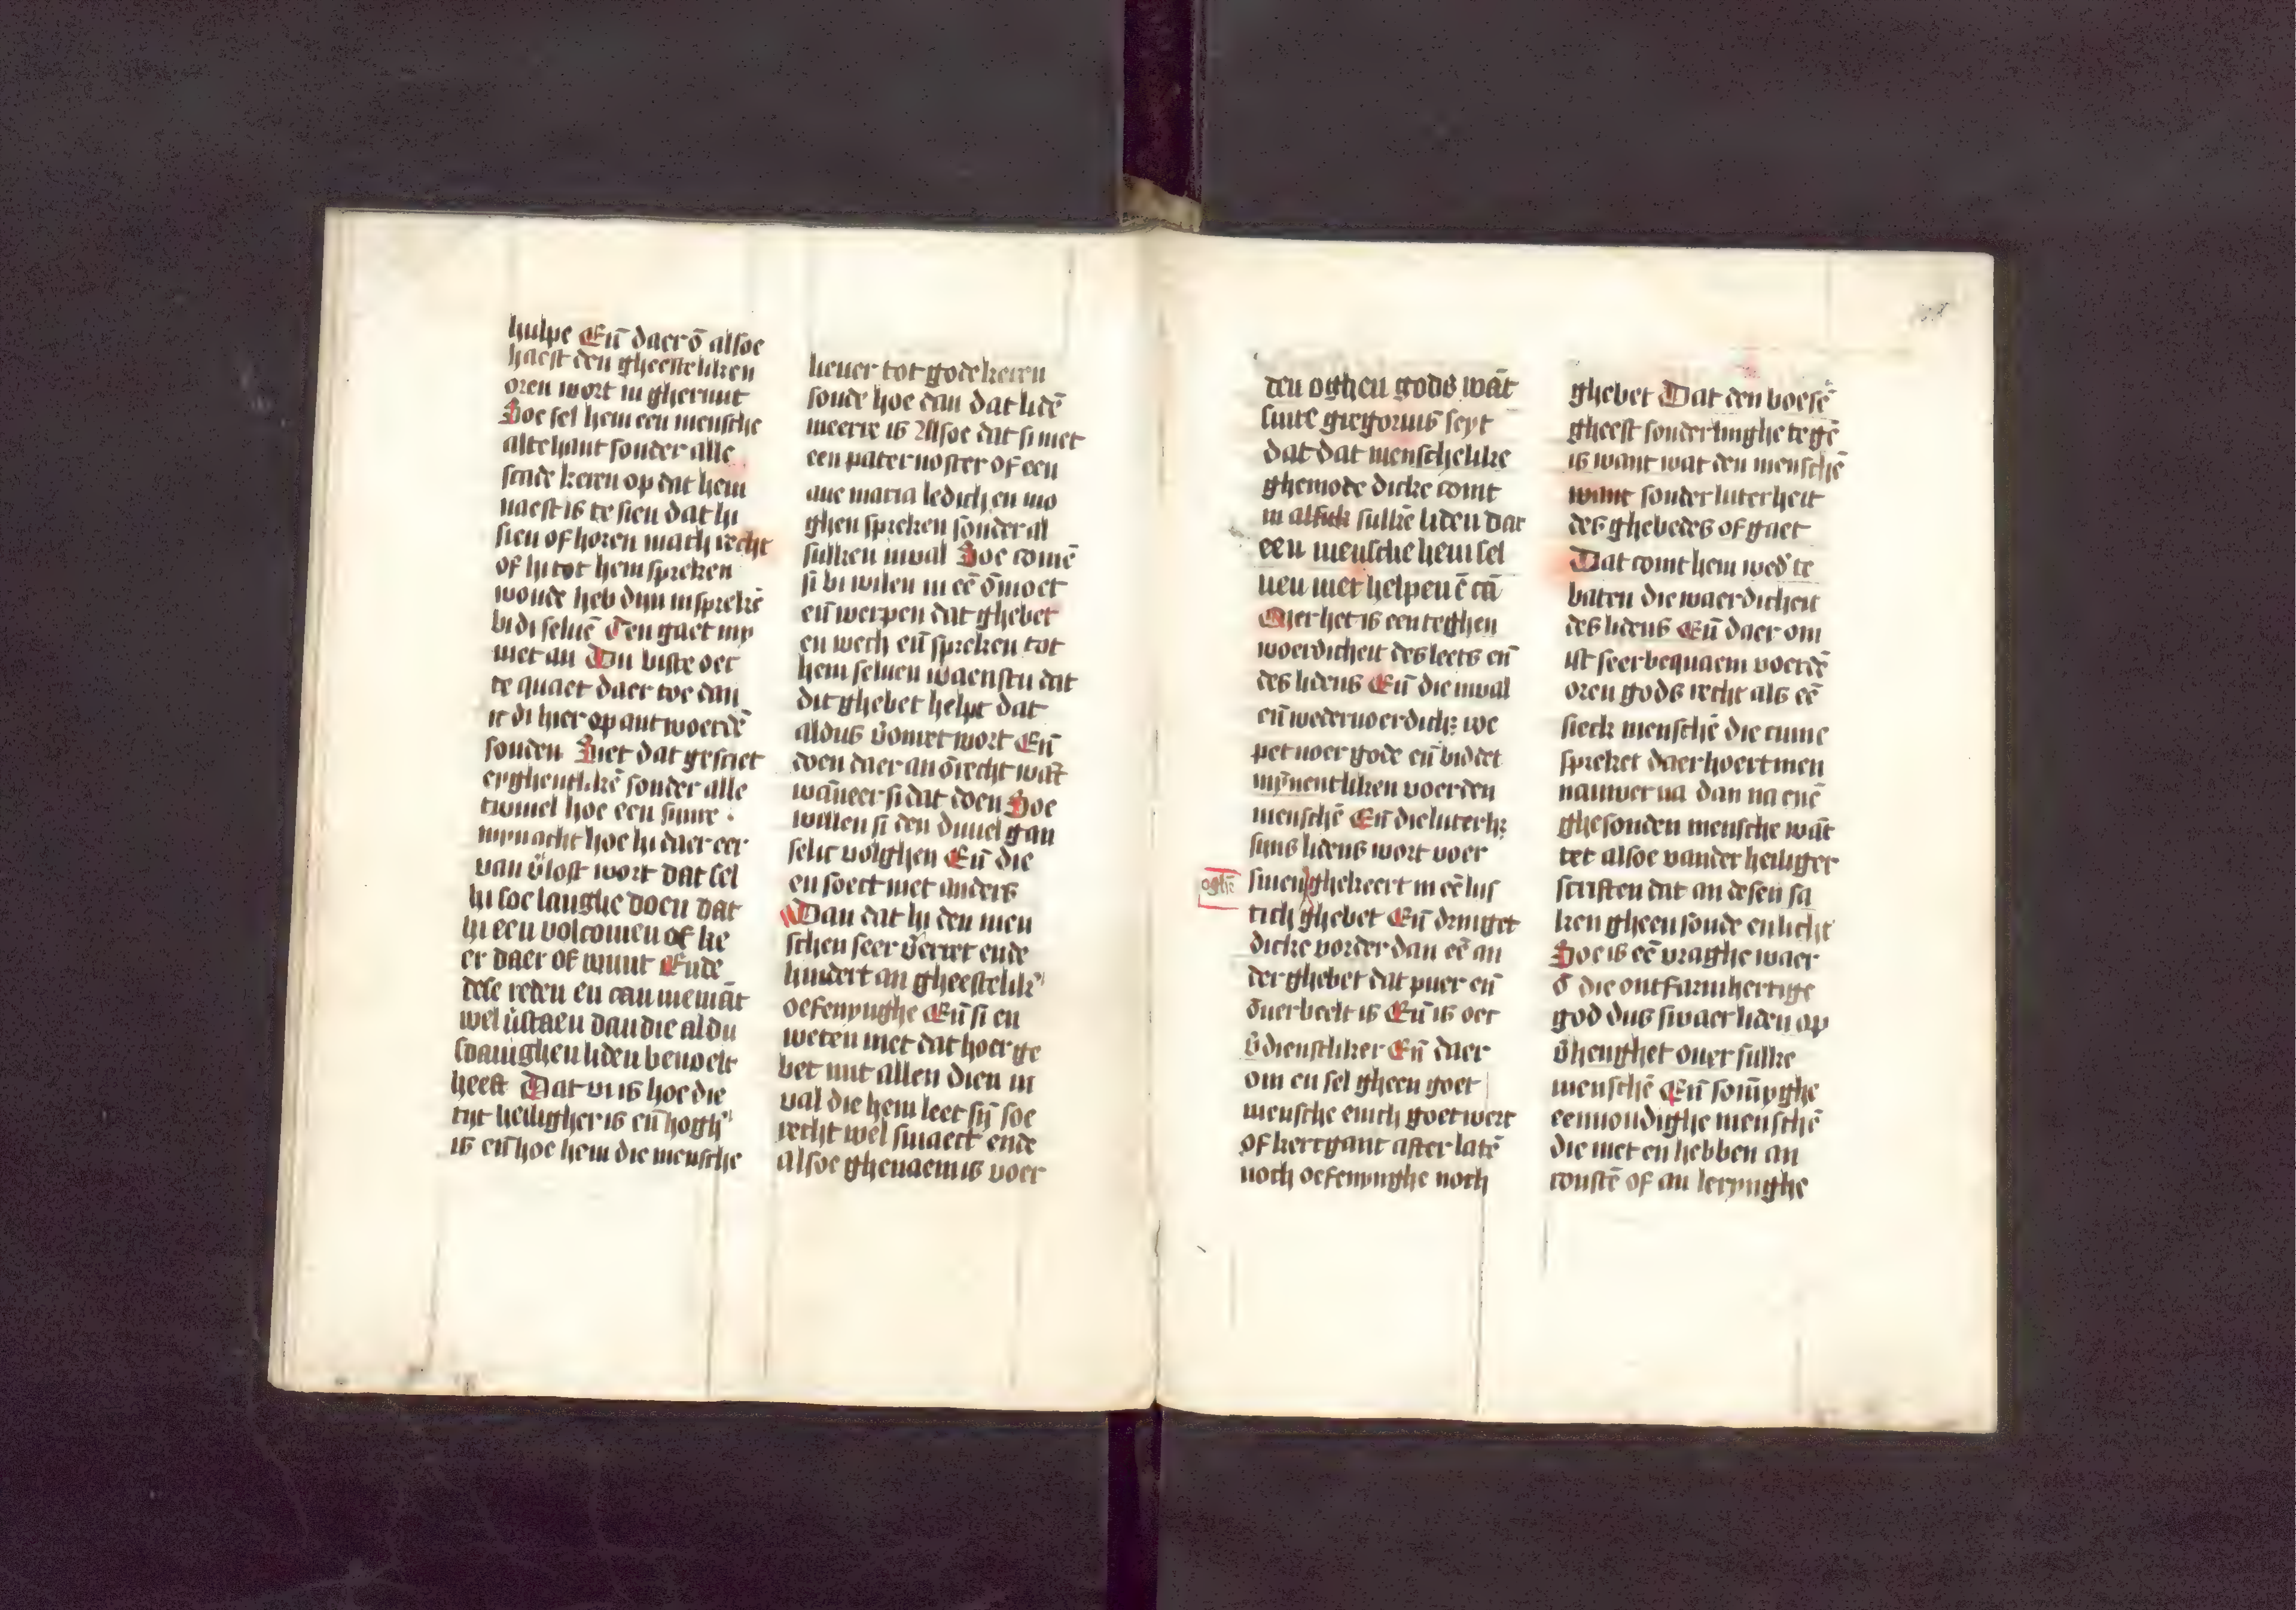 hulpe Eñ daerō alsoe
haest den gheesteliken
oren wort in gherunt
Soe sel hem een mensche
altehant sonder alle
scade keren op dat hem
naest is te sien dat hi
sien of horen mach recht
of hi tot hem spreken
woude heb dijn insprekē
bi di seluē Ten gaet my
niet an Du biste oec
te quaet daer toe dan
ic di hier op antwoerdē
souden Niet dat gesciet
eyghentlikē sonder alle
twiuel hoe een
hoe hi daer eer
van v̄lost wort dat sel
hi soe langhe doen dat
hi een volcomen of ke
er daer of wint Ende
dese reden en can niemāt
wel v̄staen dan die al du
sdanighen liden beuoelt
heeft Dat is hoe die
tijt heiligher is eñ hogh'
is eñ hoe hem die mensche
lieuer tot gode keren
soude hoe dan dat lidē
meerre is Alsoe dat si niet
een pater noster of een
aue maria ledich en mo
ghen spreken sonder al
sulken inval Soe comē
si bi wilen in eē ōmoet
eñ werpen dat ghebet
en wech eñ spreken tot
hem seluen waenstu dat
dit ghebet helpt dat
aldus v̄omet wort Eñ
doen daer an ōrecht wāt
wāneer si dat doen Soe
willen si den duuel gan
selic volghen Eñ die
en soect niet anders
Dan dat hi den men
schen seer v̄erret ende
hindert an gheestelik'
oefenynghe Eñ si en
weten niet dat hoer ge
bet mit allen dien in
val die hem leet sij̄ soe
recht wel smaect ende
alsoe ghenaem is voer
den oghen gods wāt
sinte gregorius seyt
dat dat menschelike
ghemode dicke comt
in alsulk sulkē liden dat
een mensche hem sel
uen niet helpen ē cā
Mer het is een teghen
woerdicheit des leets eñ
des lidens Eñ die inval
eñ wederwoerdich; we
pet voer gode eñ biddet
mȳnentliken voer den
menschē Eñ die luterh;
sijns lidens wort voer
sinen ghekeert in eē lus
oghē
tich ghebet Eñ dringet
dicke vorder dan eē an
der ghebet dat puer eñ
ōuerbeelt is Eñ is oec
v̄dienstliker Eñ daer
om en sel gheen goet
mensche enich goet werc
of kercgant after latē
noch oefenynghe noch
ghebet Dat den boesē
gheest sonderlinghe tegē
is want wat den menschē
want sonder luterheit
des ghebedes of gaet
Dat comt hem wed' te
baten die waerdicheit
des lidens Eñ daer om
ist seer bequaem voer dē
oren gods recht als eē
sieck menschē die cume
spreket daer hoert men
nauwer na dan na enē
ghesonden mensche wāt
tet alsoe vander heiliger
scriften dat an desen sa
ken gheen sonde en licht
Soe is eē vraghe waer
ō die ontfarmhertige
god dus swaer liden op
v̄henghet ouer sulke
menschē Eñ som̄yghe
eenuoudighe menschē
die niet en hebben an
constē of an lerynghe